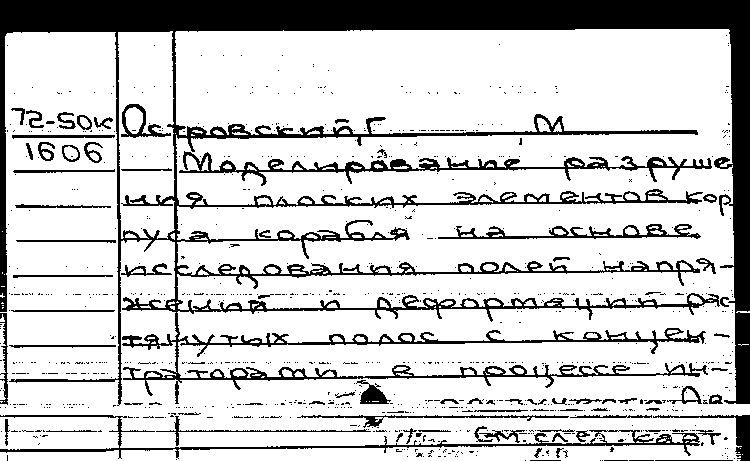 72-50к Островский, Г М
1606 Моделирование разруше
ния плоских элементов кор
пуса корабля на основе
исследования полей напря-
жений и деформаций рас
тянутых полос с концен-
траторами в процессе ин-
ползучести. Ав
См. след. карт.